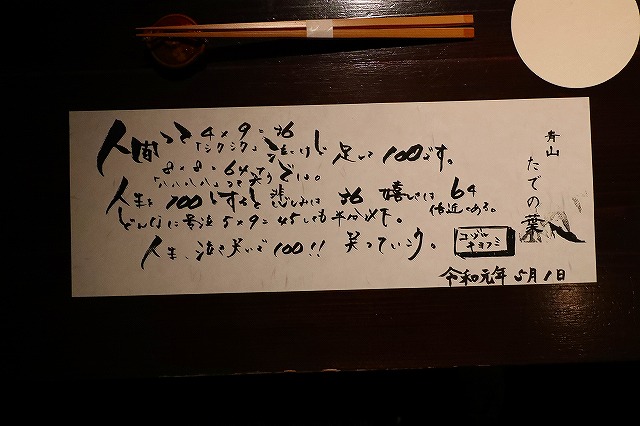 人間って 4×9=36
「シクシク」と泣くけど 足して100です。
8×8=64って
「ハハハハ」って笑う
人生を100とすると 悲しみは 36 嬉しさは 64
倍近くある。
どんなに号泣 5×9=45しても半分以下。
人生、泣き笑いで100!! 笑っていこう。
青山
たでの葉
コヅル
キヨフミ
令和元年 5月1日